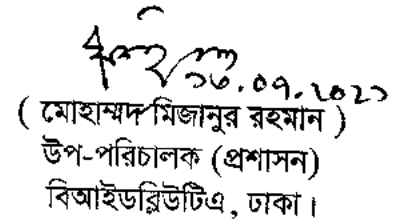 ( মোহাম্মদ মিজানুর রহমান )
উপ-পরিচালক (প্রশাসন)
বিআইডব্লিউটিএ, ঢাকা।